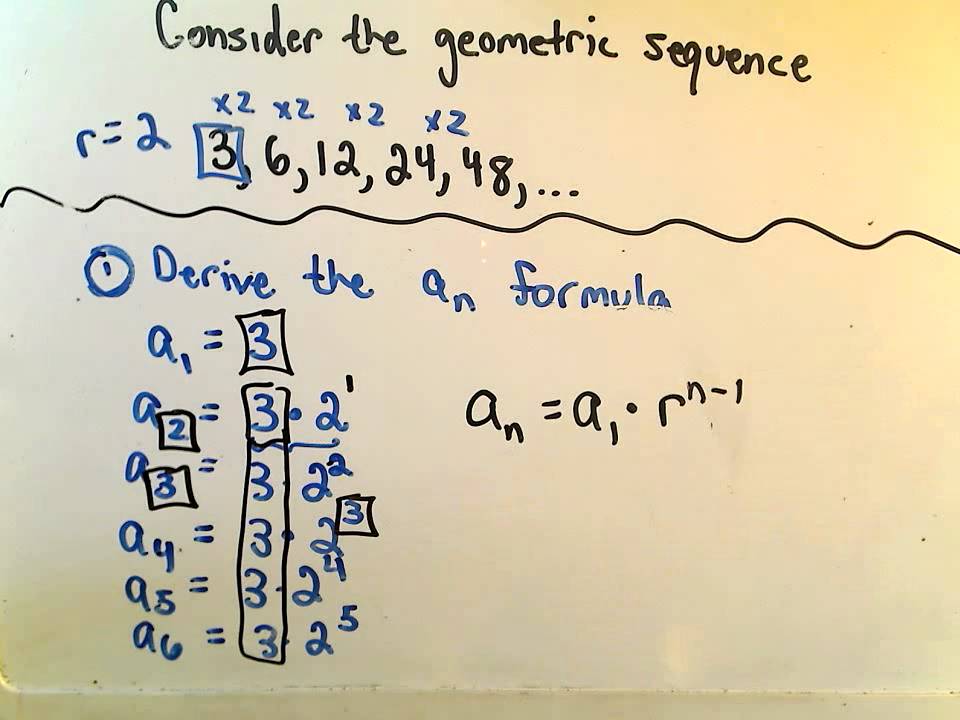 Consider the geometric sequence
×2 ×2 ×2 ×2
r=2 3, 6, 12, 24, 48, ...
① Derive the aₙ formula
a₁ = 3
a₂ = 3 · 2¹
aₙ = a₁ · rⁿ⁻¹
a₃ = 3 · 2²
a₄ = 3 · 2³
a₅ = 3 · 2⁴
a₆ = 3 · 2⁵